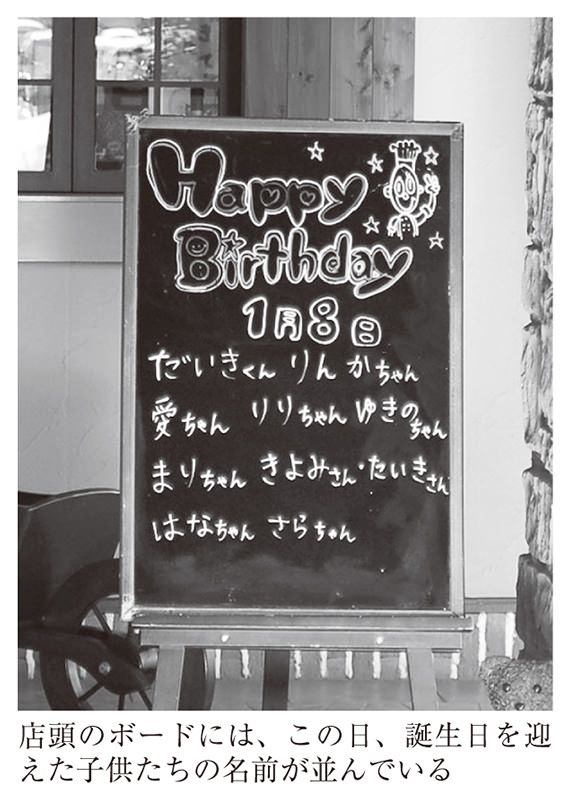 Happy
Birthday
1月8日
だいきくん りんかちゃん
愛ちゃん りりちゃん ゆきのちゃん
まりちゃん きよみさん・たいきさん
はなちゃん さらちゃん
店頭のボードには、この日、誕生日を迎
えた子供たちの名前が並んでいる